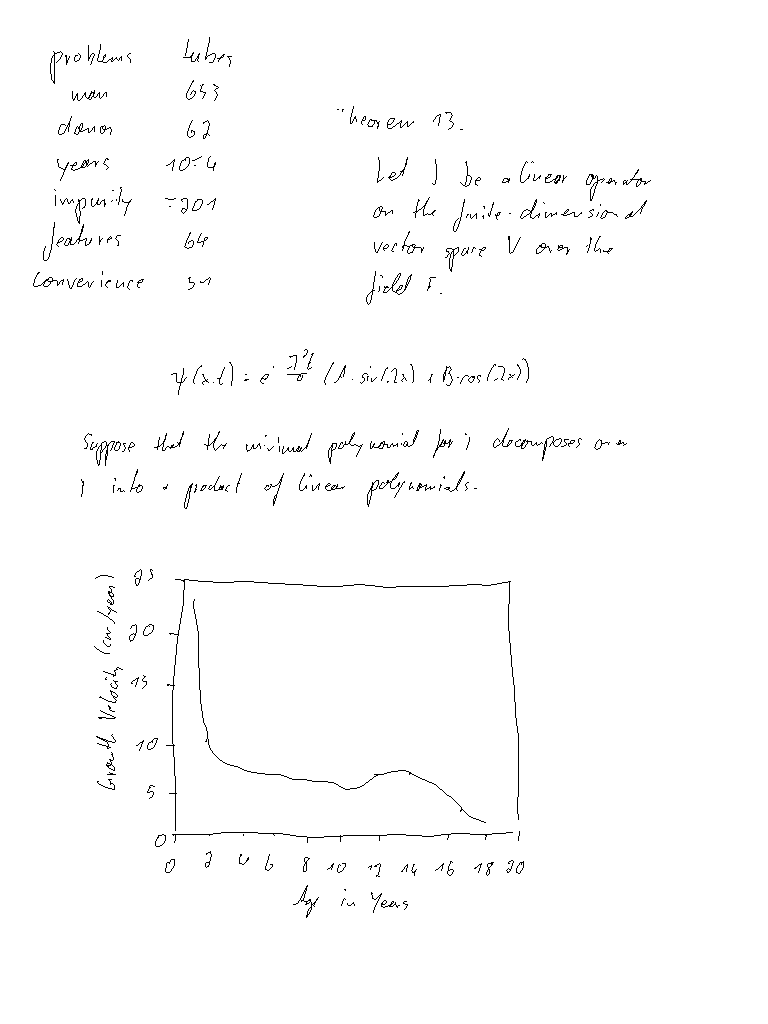 problems tubes
man 653
donor 62
years
impurity -201
features 64
convenience 51
Theorem 13.
Let T be a linear operator
on the finite-dimensional
vector space V over the
field F.
ψ(x,t) = e (A·sin(λx) + B·cos(λx))
Suppose that the minimal polynomial for decomposes over
into a product of linear polynomials.
Growth Velocity (cm/year)
25
20
15
10
5
0
0 2 4 6 8 10 12 14 16 18 20
Age in Years